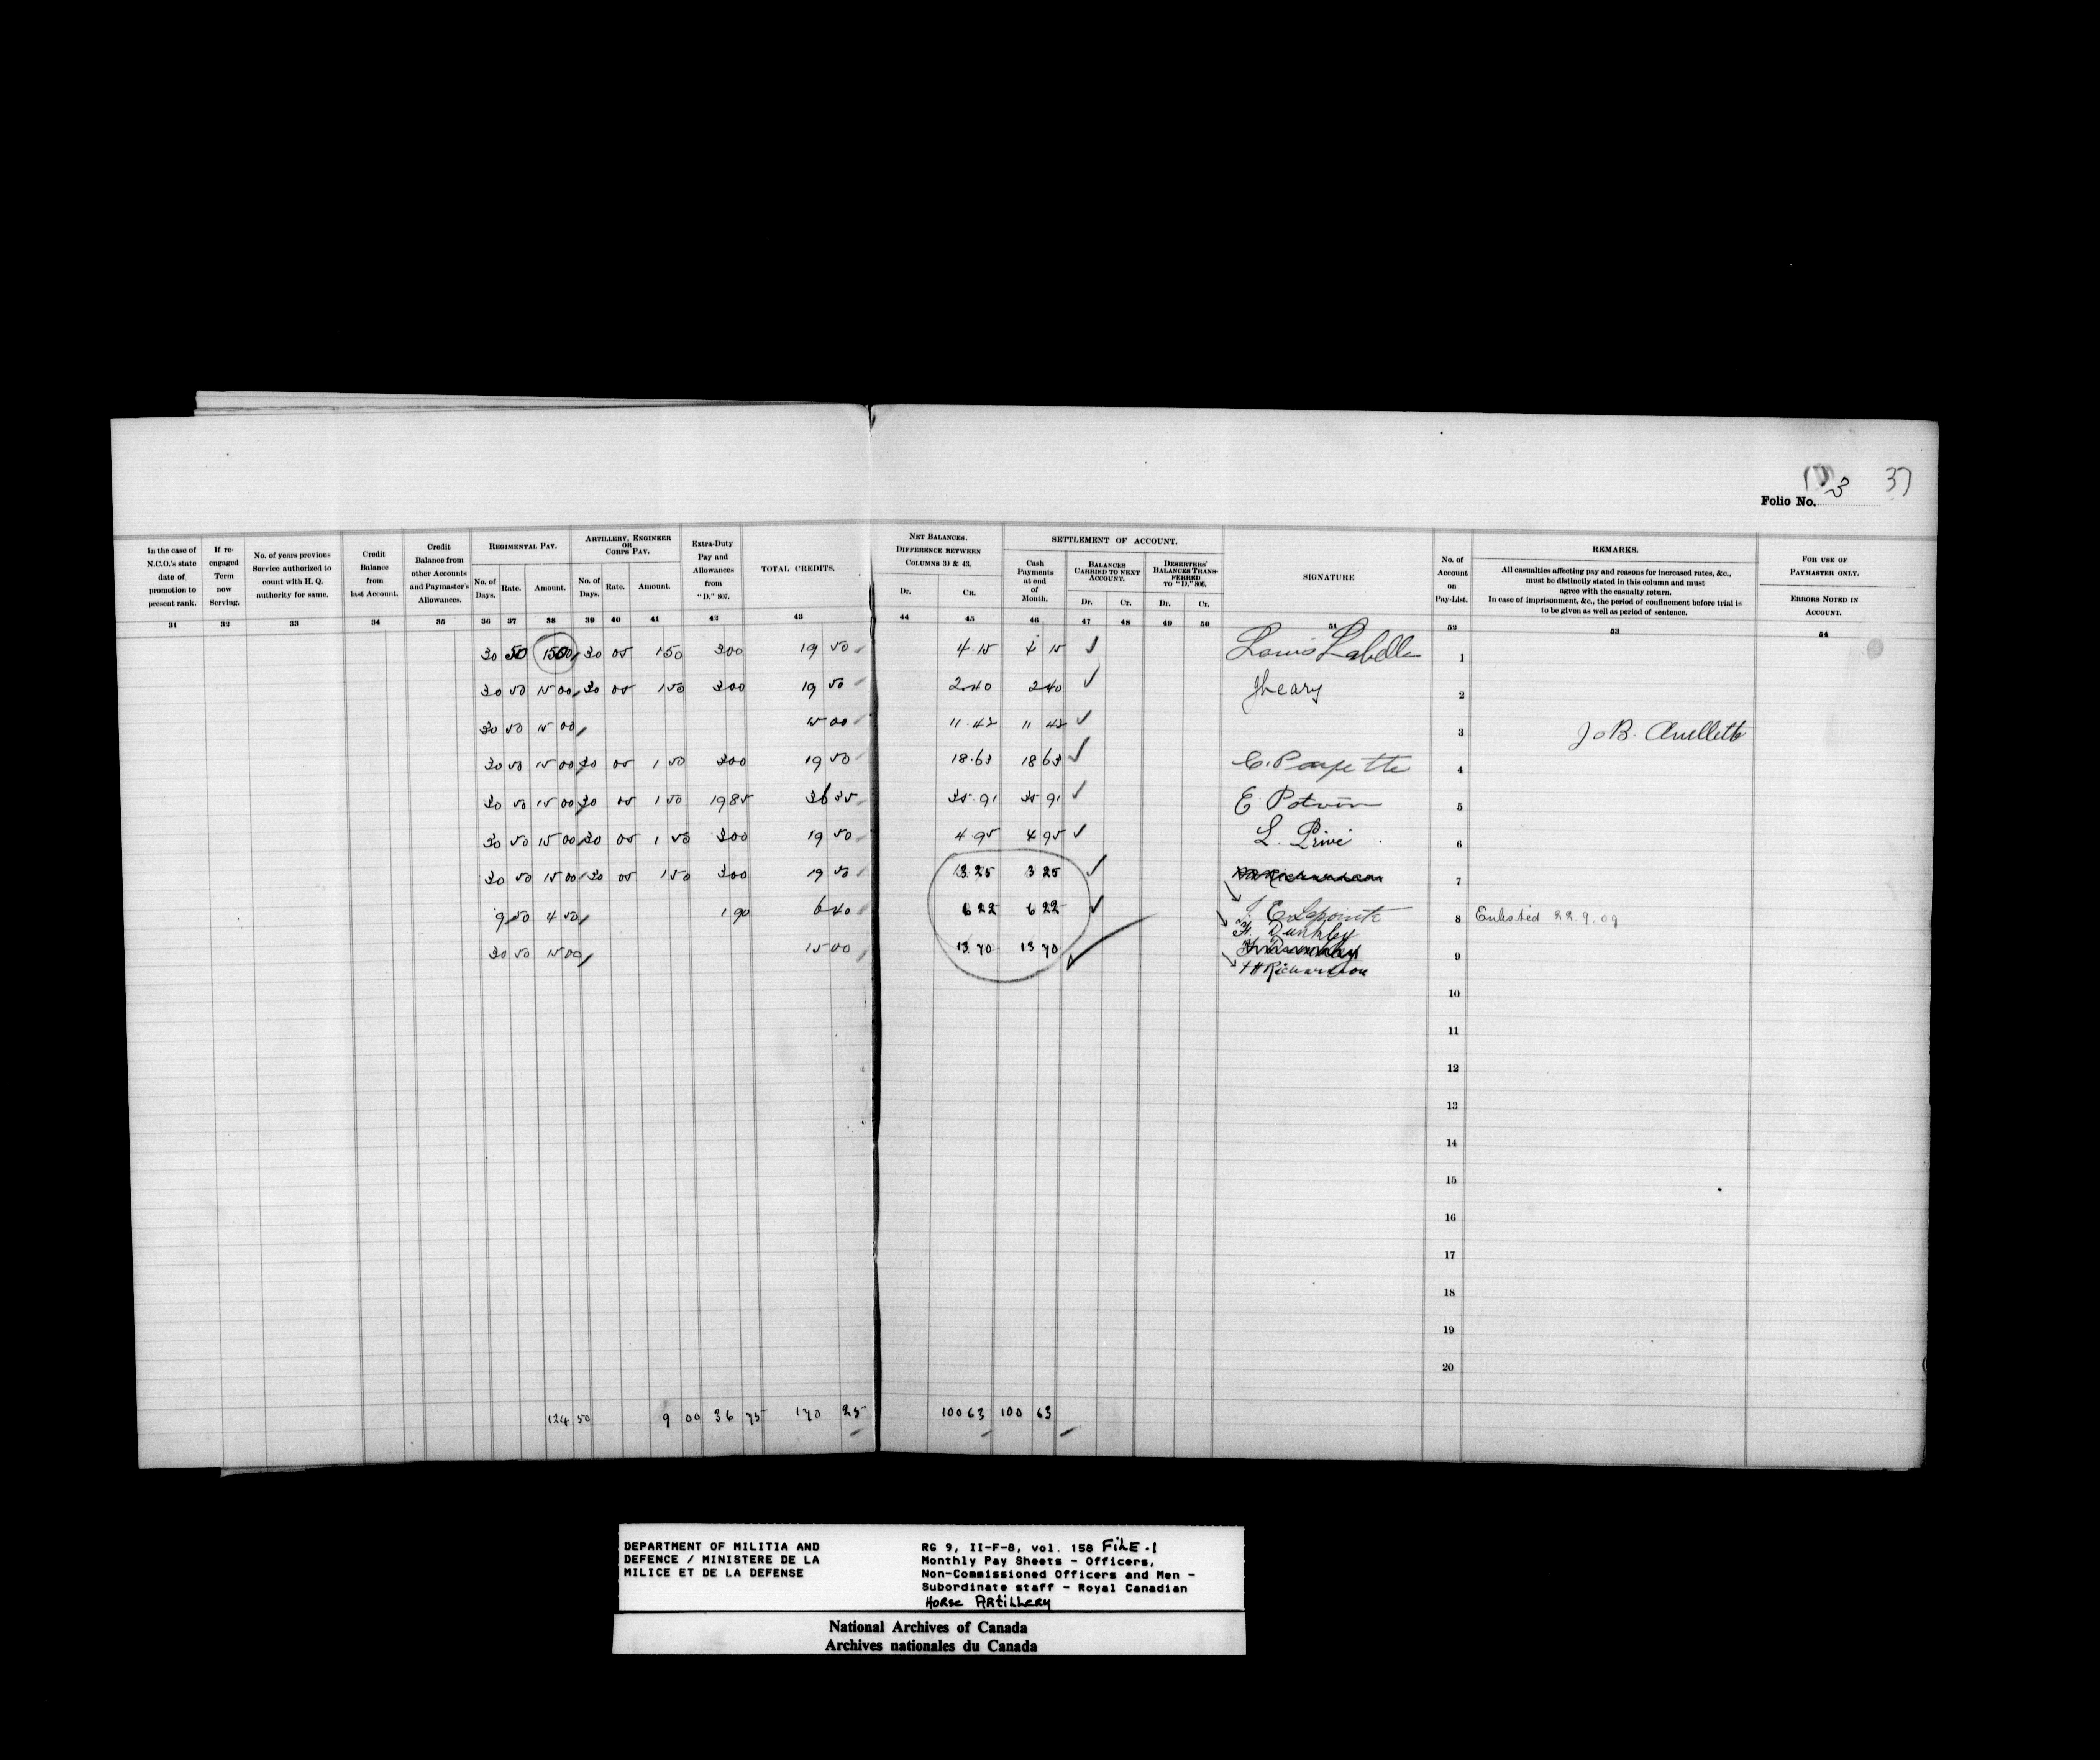 37
Folio No. 3
In the case of N.C.O.'s state date of promotion to present rank.
If re-engaged Term now Serving.
No. of years previous Service authorized to count with H. Q. authority for same.
Credit Balance from last Account.
Credit Balance from other Accounts and Paymaster's Allowances.
REGIMENTAL PAY.
No. of Days. Rate. Amount.
ARTILLERY, ENGINEER OR CORPS PAY.
No. of Days. Rate. Amount.
Extra-Duty Pay and Allowances from "D." 807.
TOTAL CREDITS.
NET BALANCES.
DIFFERENCE BETWEEN COLUMNS 30 & 43.
Dr. Cr.
SETTLEMENT OF ACCOUNT.
Cash Payments at end of Month.
BALANCES CARRIED TO NEXT ACCOUNT.
Dr. Cr.
DESERTERS' BALANCES TRANSFERRED TO "D." 806.
Dr. Cr.
SIGNATURE
No. of Account on Pay-List.
REMARKS.
All casualties affecting pay and reasons for increased rates, &c., must be distinctly stated in this column and must agree with the casualty return.
In case of imprisonment, &c., the period of confinement before trial is to be given as well as period of sentence.
FOR USE OF PAYMASTER ONLY.
ERRORS NOTED IN ACCOUNT.
31 32 33 34 35 36 37 38 39 40 41 42 43 44 45 46 47 48 49 50 51 52 53 54
30 50 15 00 30 05 1 50 3 00 19 50 4.15 4 15 Louis Labelle 1
30 50 15 00 30 05 1 50 3 00 19 50 2.40 2 40 J Leary 2
30 50 15 00 15 00 11.42 11 42 3 J.B.
30 50 15 00 30 05 1 50 3 00 19 50 18.63 18 63 4
30 50 15 00 30 05 1 50 19 85 36 35 35.91 35 91 E. Potvin 5
30 50 15 00 30 05 1 50 3 00 19 50 4.95 4 95 L. Privé 6
30 50 15 00 30 05 1 50 3 00 19 50 3 25 3 25 7
9 50 4 50 1 90 6 40 6 22 6 22 E Lapointe 8 Enlisted 22.9.09
H. Dunkley
30 50 15 00 15 00 13 70 13 70 9
H Richardson
10
11
12
13
14
15
16
17
18
19
20
124 50 9 00 36 75 170 25 100 63 100 63
DEPARTMENT OF MILITIA AND
DEFENCE / MINISTERE DE LA
MILICE ET DE LA DEFENSE
RG 9, II-F-8, vol. 158 FiLE.1
Monthly Pay Sheets - Officers,
Non-Commissioned Officers and Men -
Subordinate staff - Royal Canadian
Horse Artillery
National Archives of Canada
Archives nationales du Canada